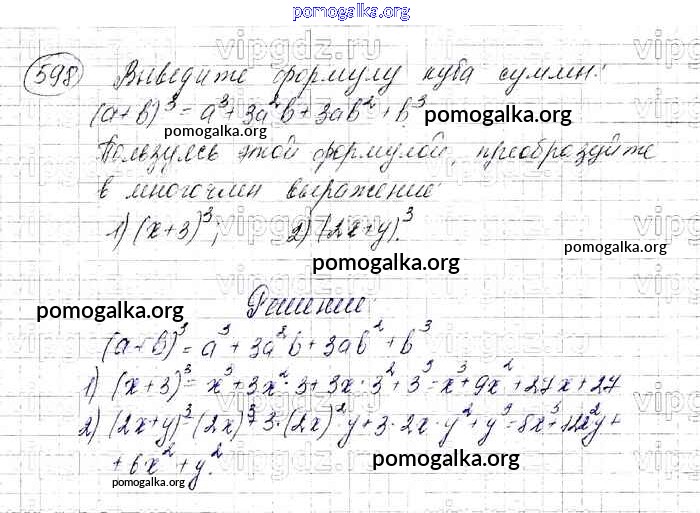 pomogalka.org
vipgdz.ru
598 Выведите формулу куба суммы:
(a+b)³ = a³ + 3a²b + 3ab² + b³.
pomogalka.org
pomogalka.org
Пользуясь этой формулой, преобразуйте
в многочлен выражение
1) (x+3)³; 2) (2x+y)³.
pomogalka.org
pomogalka.org
Решение:
pomogalka.org
(a+b)³ = a³ + 3a²b + 3ab² + b³
1) (x+3)³ = x³ + 3x²·3 + 3x·3² + 3³ = x³ + 9x² + 27x + 27
2) (2x+y)³ = (2x)³ + 3·(2x)²y + 3·2x·y² + y³ = 8x³ + 12x²y +
+ 6x² + y².
pomogalka.org
pomogalka.org